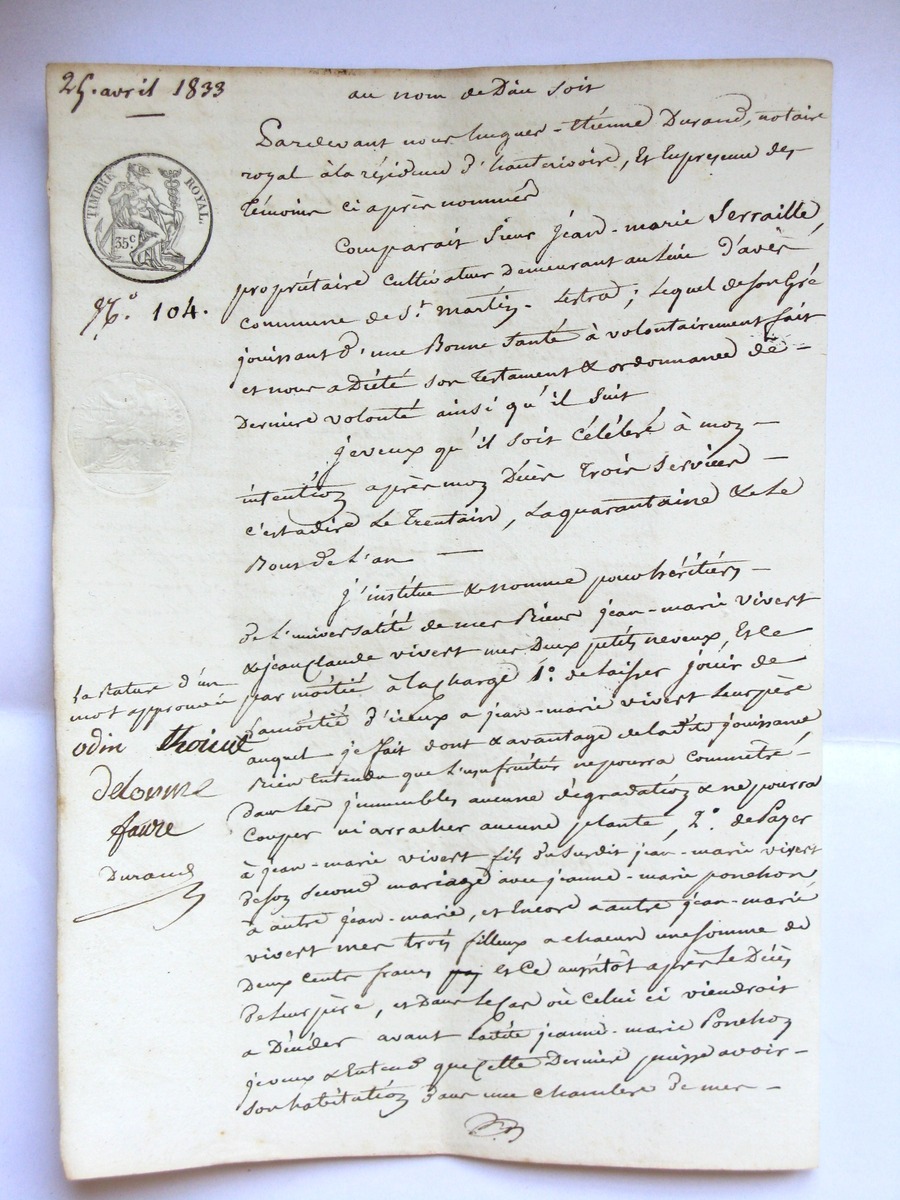 25. avril 1833
au nom de Dieu soit
Pardevant nous hugues-Etienne Durand, notaire
royal à la résidence d'hauterivoire, Et en presence des
témoins ci après nommés
TIMBRE ROYAL.
35c.
Comparait Sieur Jean-marie Serraille
propriétaire Cultivateur demeurant au lieu d'avèr
N.o 104.
commune de St. martin-Lestra; Lequel de son Gré
jouissant d'une Bonne Santé à volontairement fait
et nous a Dicté son testament & ordonnance de
Derniere volonté ainsi qu'il Suit
je veux qu'il soit Célébré à mon
intention après mon Décès trois Services
c'est adire Le trentain, La quarantaine & Le
Bout de L'an
j'institue & nomme pour héritiers
de L'universalité de mes Biens jean-marie vivert
& jean Claude vivert mes Deux petits neveux, Et Ce
par moitié à la charge 1.o de laisser jouir de
La moitié d'iceux a jean-marie vivert Leur père
auquel je fait dont & avantage de la dite jouissance
Bien Entendu que L'usufruitier ne pourra Commetre
Dans les jmmeubles aucune dégradation & ne pourra
Couper ni arracher aucune plante, 2.o de Payer
à jean-marie vivert fils du Surdit jean-marie vivert
de son Second mariage avec jeanne-marie ponchon
à autre jean-marie, et Encore a autre jean-marie
vivert mes trois filleux a chacun une somme de
Deux Cents francs et Ce aussitôt après Le Décès
de Leur père, et Dans Le Cas où Celui ci viendrait
a Décéder avant Ladite jeanne-marie Ponchon
je veux & Entend que Cette Dernière puisse avoir
son habitation dans une chambre de mes
La Rature d'un
mot approuvée
odin thoinet
Delorme
faure
Durand